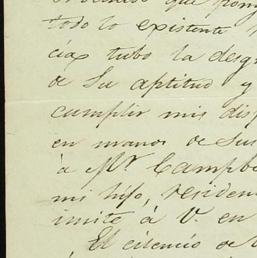 que pong
todo lo existente
cias tubo la desgr
de Su aptitud y
cumplir mis disp
en manos de sus
á Mr. Campb
mi hijo, residen
imito á V. en
El silencio de V